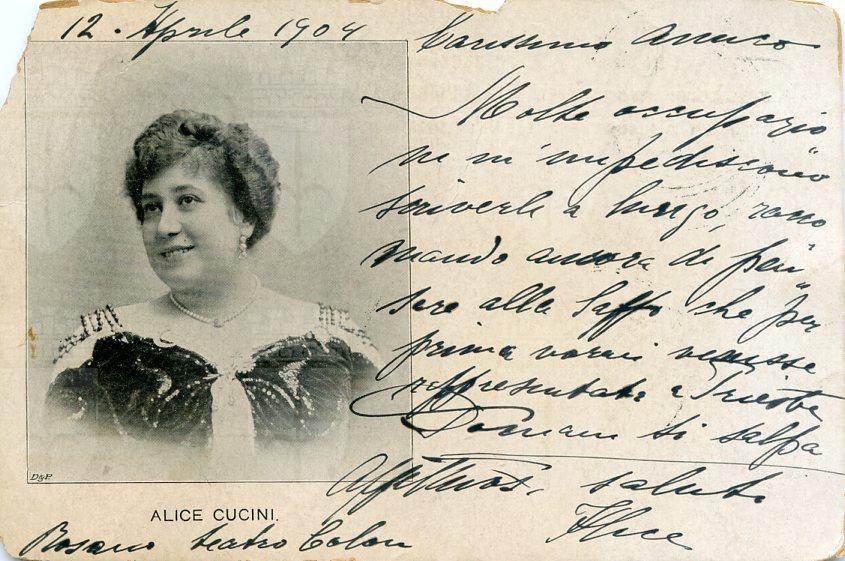 12. Aprile 1904
Carissimo amico
Molte occupazio
ni m'impediscono
scriverle a lungo, racco
mando ancora di pen
sare alla Saffo che per
prima vorrei venisse
rappresentata a Trieste
Domani si salpa
Affettuosi saluti
Alice
D&P.
ALICE CUCINI.
Rosario teatro Colon